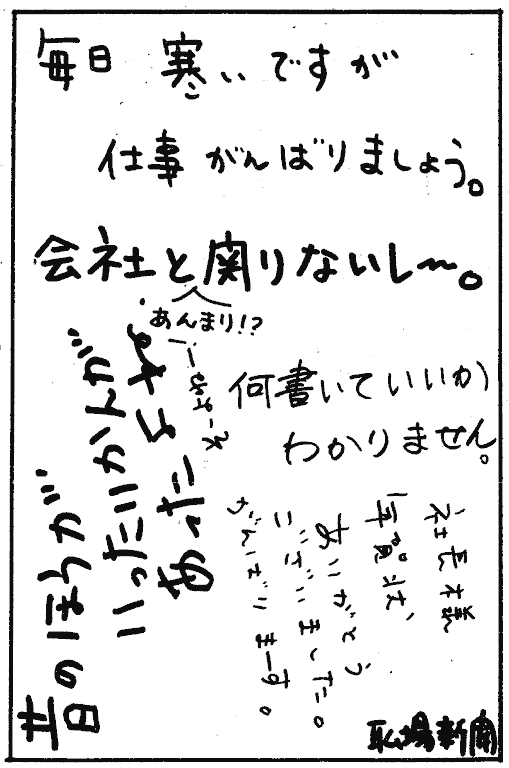 毎日 寒いですが
仕事 がんばりましょう。
会社と関りないし〜。
あんまり!?
何書いていいか
わかりません。
社長様
年賀状、
ありがとう
ございました。
がんばりまーす。
昔のほうが
いったいかんが
あったよ
職場新聞